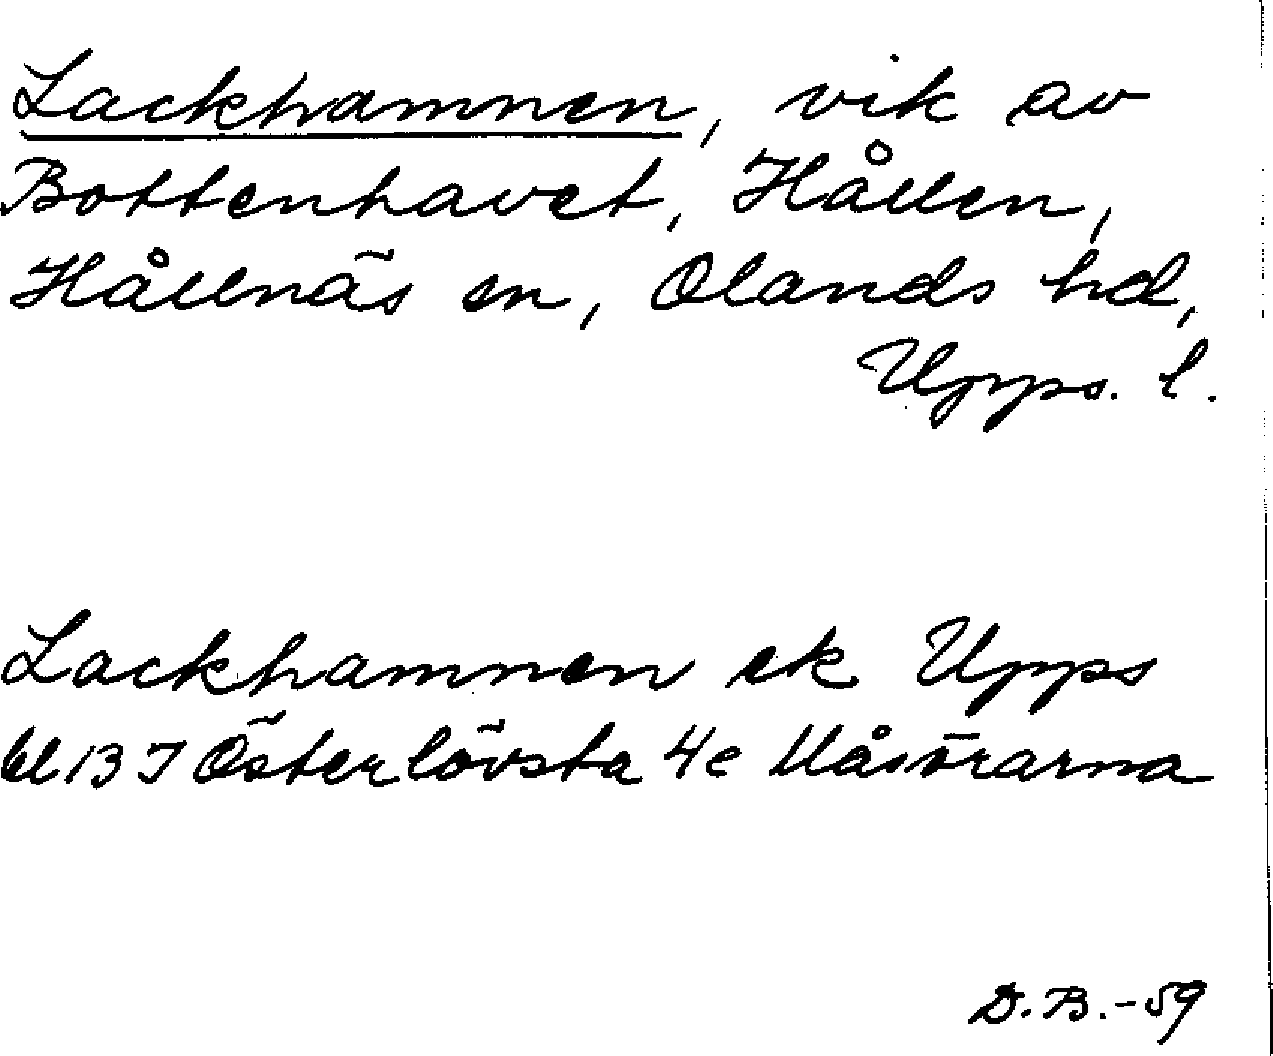 Lackhamnen, vik av
Bottenhavet, Hållen,
Hållnäs sn, Olands hd,
Upps. l.
Lackhamnen ek Upps
bl 13 I Österlövsta 4e Måsörarna
D.B. -59